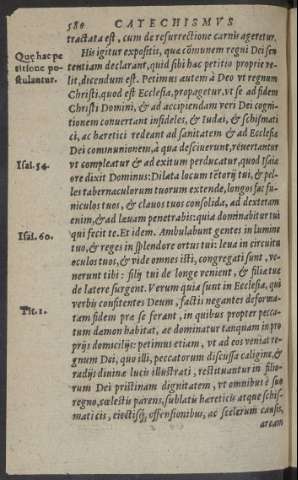 580 CATECHISMVS
tractata est, cum de resurrectione carnis ageretur.
His igitur expositis, quæ cōmunem regni Dei sen
Quę hac pe
titione po-
stulantur.
tentiam declarant, quid sibi hac petitio propriè ve-
lit, dicendum est. Petimus autem à Deo vt regnum
Christi, quod est Ecclesia, propagetur, vt se ad fidem
Christi Domini, & ad accipiendam veri Dei cogni-
tionem conuertant infideles, & Iudæi, & schismati
ci, ac hæretici redeant ad sanitatem & ad Ecclesiæ
Dei communionem, à qua desciuerunt, reuertantur
Isai. 54.
vt compleatur & ad exitum perducatur, quod Isaiæ
ore dixit Dominus: Dilata locum tētorij tui, & pel-
les tabernaculorum tuorum extende, longos fac fu-
niculos tuos, & clauos tuos consolida, ad dexteram
enim, & ad læuam penetrabis: quia dominabitur tui
Isai. 60.
qui fecit te. Et idem. Ambulabunt gentes in lumine
tuo, & reges in splendore ortus tui: leua in circuitu
oculos tuos, & vide omnes isti, congregati sunt, ve-
nerunt tibi: filij tui de longe venient, & filiæ tuæ
de latere surgent. Verum quia sunt in Ecclesia, qui
Tit. 1.
verbis confitentes Deum, factis negantes deforma-
tam fidem præ se ferant, in quibus propter pecca-
tum dæmon habitat, ac dominatur tanquam in pro
prijs domicilijs: petimus etiam, vt ad eos veniat re-
gnum Dei, quo illi, peccatorum discussa caligine, &
radijs diuinæ lucis illustrati, restituantur in filio-
rum Dei pristinam dignitatem, vt omnibus è suo
regno, cœlestis parens, sublatis hæreticis atque schis-
maticis, eiectisq́; offensionibus, ac scelerum causis,
aream